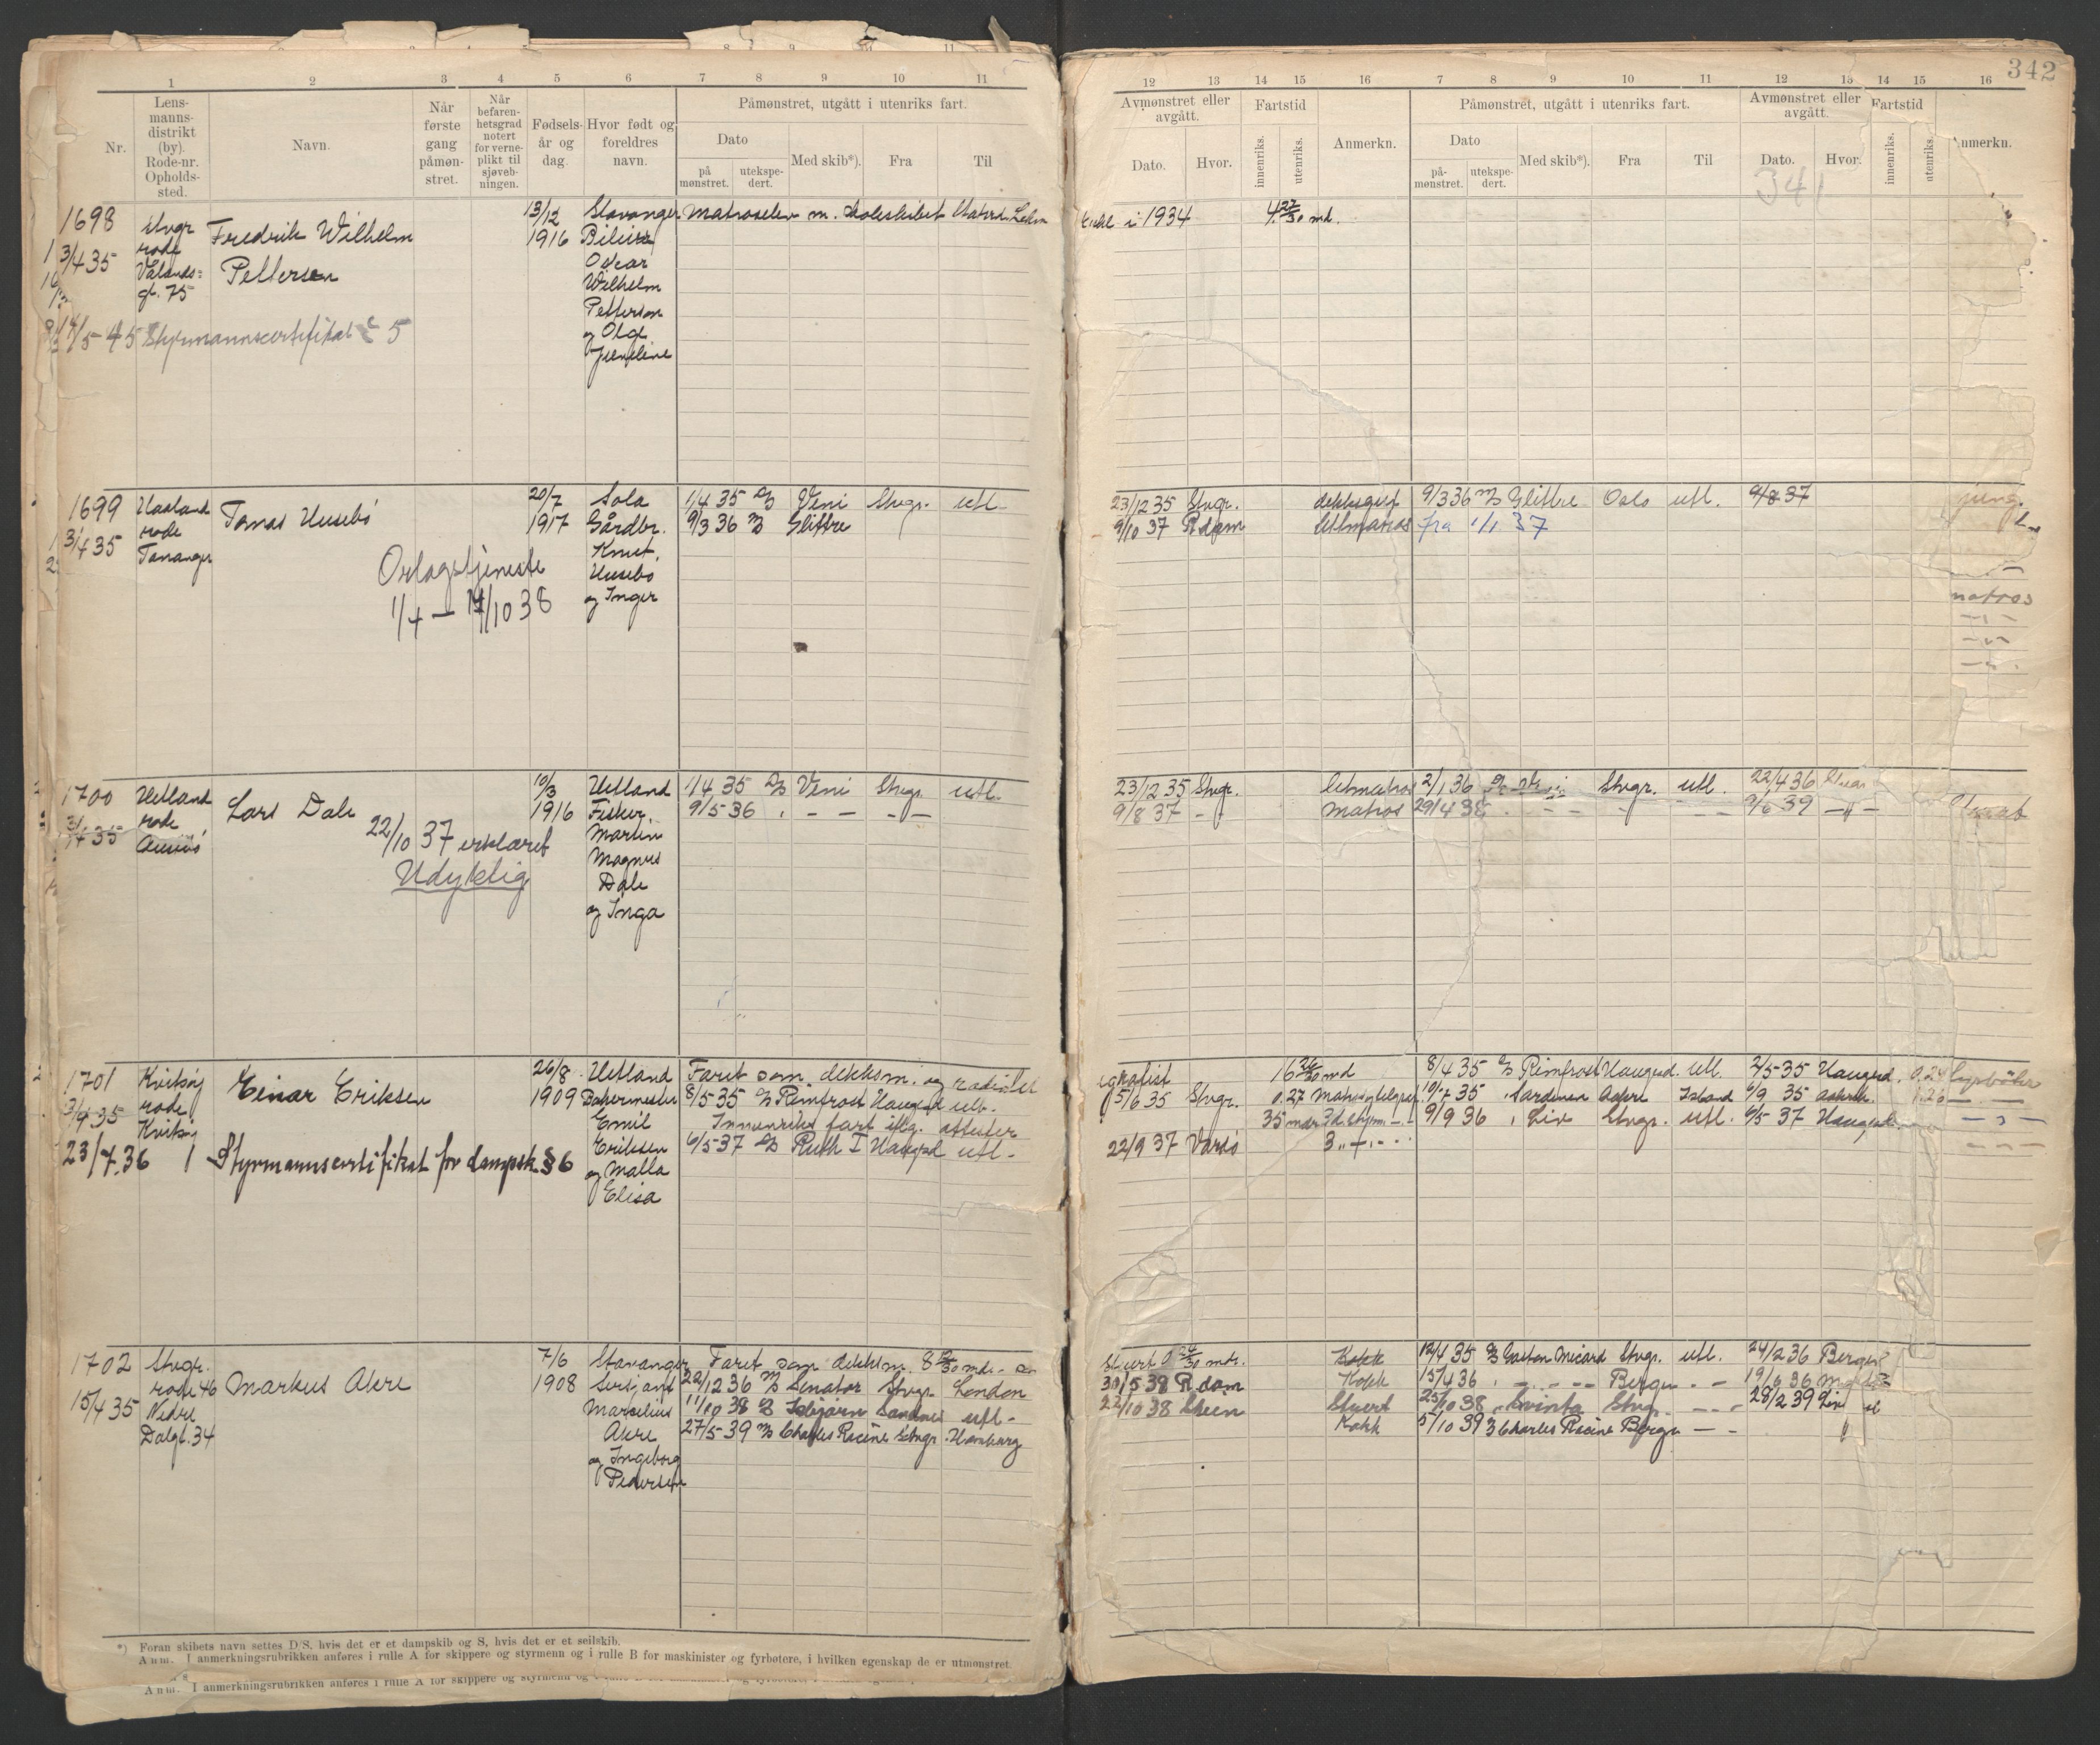 342
1 2 3 4 5 6 7 8 9 10 11
Nr.
Lens-
manns-
distrikt
(by).
Rode-nr.
Opholds-
sted.
Navn.
Når
første
gang
påmøn-
stret.
Når
befaren-
hetsgrad
notert
for verne-
plikt til
sjøveb-
ningen.
Fødsels-
år og
dag.
Hvor født og
foreldres
navn.
Påmønstret, utgått i utenriks fart.
Dato
på
mønstret.
utekspe-
dert.
Med skib*).
Fra
Til
12 13 14 15 16 7 8 9 10 11 12 13 14 15 16
Avmønstret eller
avgått.
Dato.
Hvor.
Fartstid
innenriks.
utenriks.
Anmerkn.
Påmønstret, utgått i utenriks fart.
Dato
på-
mønstret.
utekspe-
dert.
Med skib*).
Fra
Til
Avmønstret eller
avgått.
Dato.
Hvor.
341
Fartstid
innenriks.
utenriks.
Anmerkn.
1698 Stvgr 13/12 Stavanger Matroselev m. skoleskibet
rode Fredrik Wilhelm 1916
3/4 35 Pettersen Oscar
gt. 75 Wilhelm
Petterson
og Olga
14/5-45 Styrmannscertifikat 5
i 1934 4 27/30 md.
1699 Haaland Tomas Husebö 20/7 Sola 1/4 35 D/S Veni Stvgr. utl.
rode 1917 Gårdbr. 9/3 36 M/S Glittre
3/4 35 Tananger Knut
Husebö
og Inger
Orlogstjeneste
1/4 — 14/10 38
23/12 35 Stvgr. dekksgut 9/3 36 M/S Glittre Oslo utl. 9/8 37
9/10 37 R dam lettmatros fra 1/1 37
jung.
matros
1700 Hetland Lars Dale 10/3 Hetland 1/4 35 D/S Veni Stvgr. utl.
rode 1916 Fisker 9/5-36 " — — — —
3/4 35 Martin
Magnus
Dale
og Inga
22/10 37 erklæret
Udyktig
23/12 35 Stvgr. letmatros 2/1 36 Stvgr. utl. 22/4 36
9/8 37 — " — Matros 29/4 38 9/6 39 — " —
1701 Kvitsöy Einar Eriksen 26/8 Hetland Faret som dekksm. og radiotel
rode 1909 8/5-35 D/S Rimfrost Haugsd utl.
3/4 35 Kvitsöy Emil Innenriks fart
Eriksen 6/5-37 D/S Ruth I Haugsd utl.
og Malla
Elisa
23/7.36 Styrmannscertifikat for dampsk. §6
egrafist 16 26/30 md 8/4 35 D/S Rimfrost Haugsd. utl. 2/5-35 Haugsd. 0.24 fyrböter
5/6 35 Stvgr. 0.27 10/7 35 Sardinen Aakre Island 6/9 35 Aakreh. 1.26
35 mdr 9/9 36 " Liv Stvgr. utl. 6/5 37 Haugsd.
22/9 37 Vardö 3
1702 Stvgr. Markus Akre 7/6 Stavanger Faret som dekksm. 8 12/30 mdr. som
rode 46 1908 Sersjant 22/12 36 M/S Senator Stvgr London
15/4 35 Nedre Marselius 11/10 38 D/S Isbjørn Sandnes utl.
Dalgt. 34 Akre 27/5-39 M/S Charles Racine Stvgr. Hamburg
og Ingeborg
Pedersen
stuert 0 24/30 mdr. Kokk 12/4 35 D/S Gaston Micard Stvgr. utl. 24/2 36 Bergen
30/5 38 R dam Kokk 15/4 36 " — — — Bergen — 19/6 36
22/10 38 Skien Stuert 25/10 38 Kvinta Stvgr — — 28/2 39
Kokk 5/10 39 Charles Racine Bergen —
*) Foran skibets navn settes D/S, hvis det er et dampskib og S, hvis det er et seilskib.
Anm. I anmerkningsrubrikken anføres i rulle A for skippere og styrmenn og i rulle B for maskinister og fyrbøtere, i hvilken egenskap de er utmønstret.
Anm. I anmerkningsrubrikken anføres i rulle A for skippere og styrmenn og